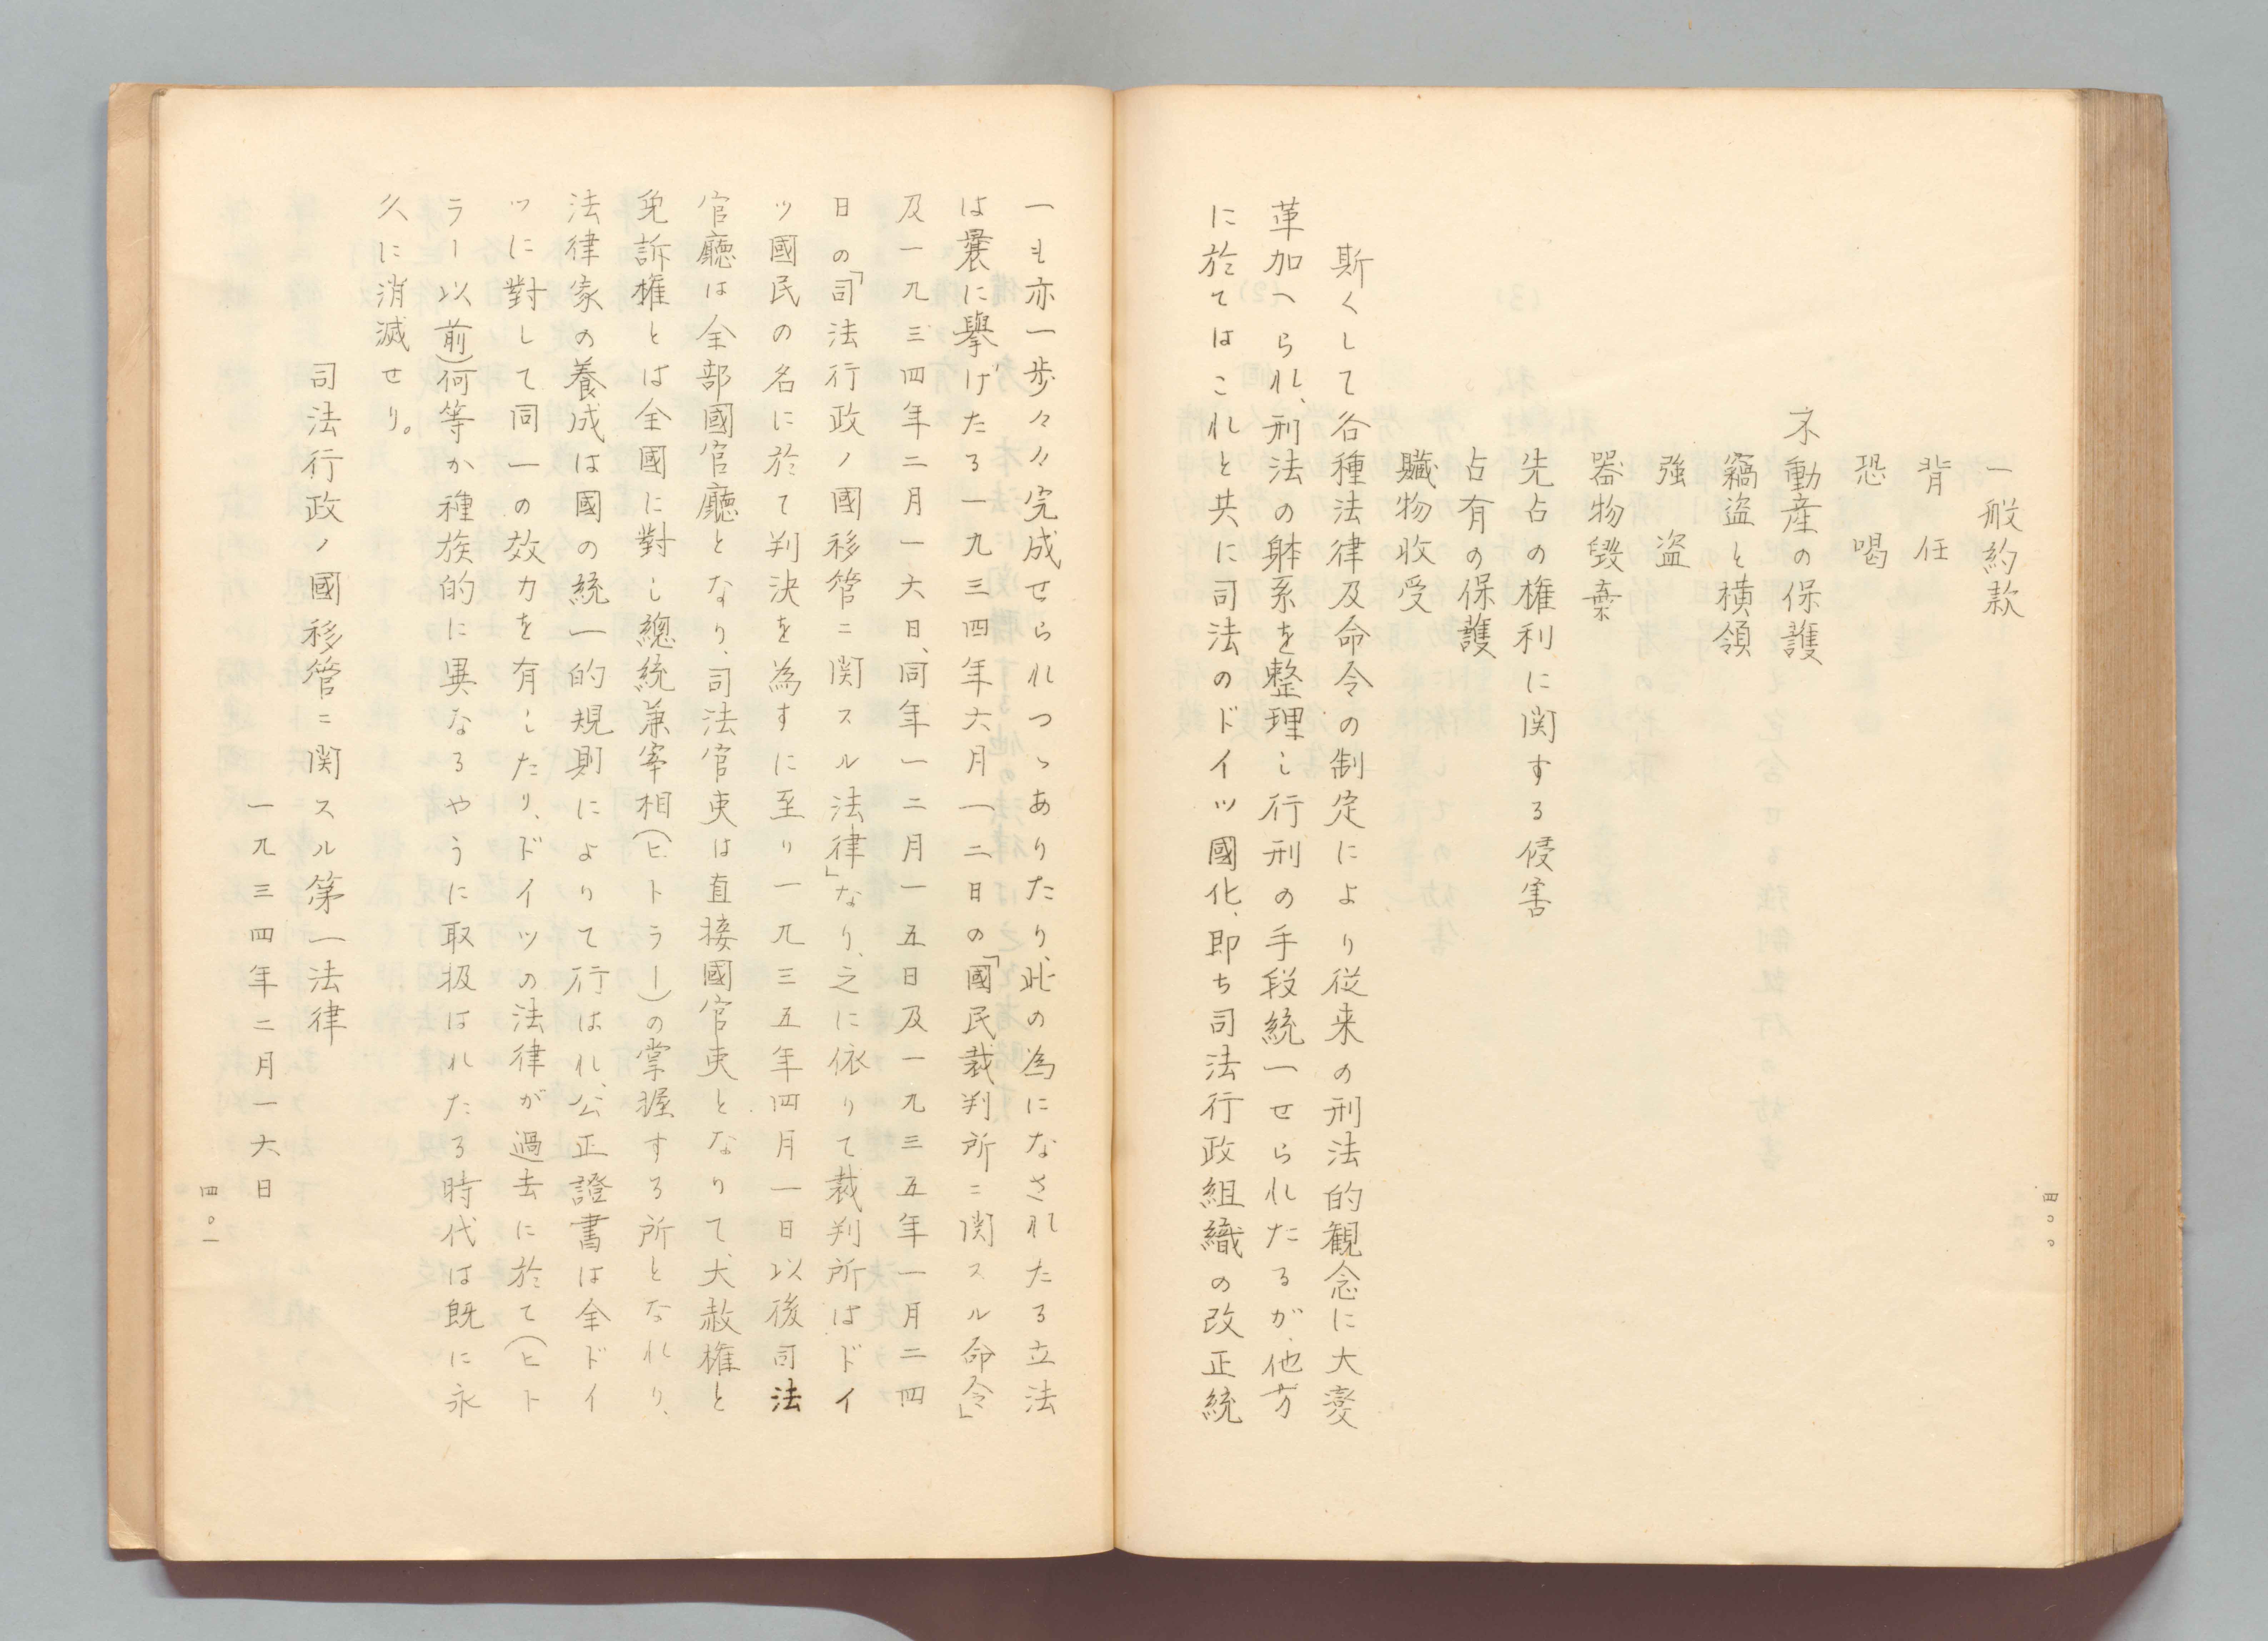 一般約款
背任
恐喝
不動産の保護
竊盗と横領
強盗
器物毀棄
先占の権利に関する侵害
占有の保護
贓物收受
斯くして各種法律及命令の制定により従来の刑法的観念に大變
革加へられ、刑法の躰系を整理し行刑の手段統一せられたるが、他方
に於てはこれと共に司法のドイツ國化、即ち司法行政組織の改正統
四〇〇
一も亦一歩々々完成せられつゝありたり、此の為になされたる立法
は曩に擧げたる一九三四年六月一二日の「國民裁判所ニ関スル命令」
及一九三四年二月一六日、同年一二月一五日及一九三五年一月二四
日の「司法行政ノ國移管ニ関スル法律」なり、之に依りて裁判所はドイ
ツ國民の名に於て判決を為すに至り一九三五年四月一日以後司法
官廳は全部國官廳となり、司法官吏は直接國官吏となりて大赦権と
免訴権とは全國に對し總統兼宰相(ヒトラー)の掌握する所となれり、
法律家の養成は國の統一的規則によりて行はれ、公正證書は全ドイ
ツに對して同一の效力を有したり、ドイツの法律が過去に於て(ヒト
ラー以前)何等か種族的に異なるやうに取扱はれたる時代は既に永
久に消滅せり。
司法行政ノ國移管ニ関スル第一法律
一九三四年二月一六日
四〇一